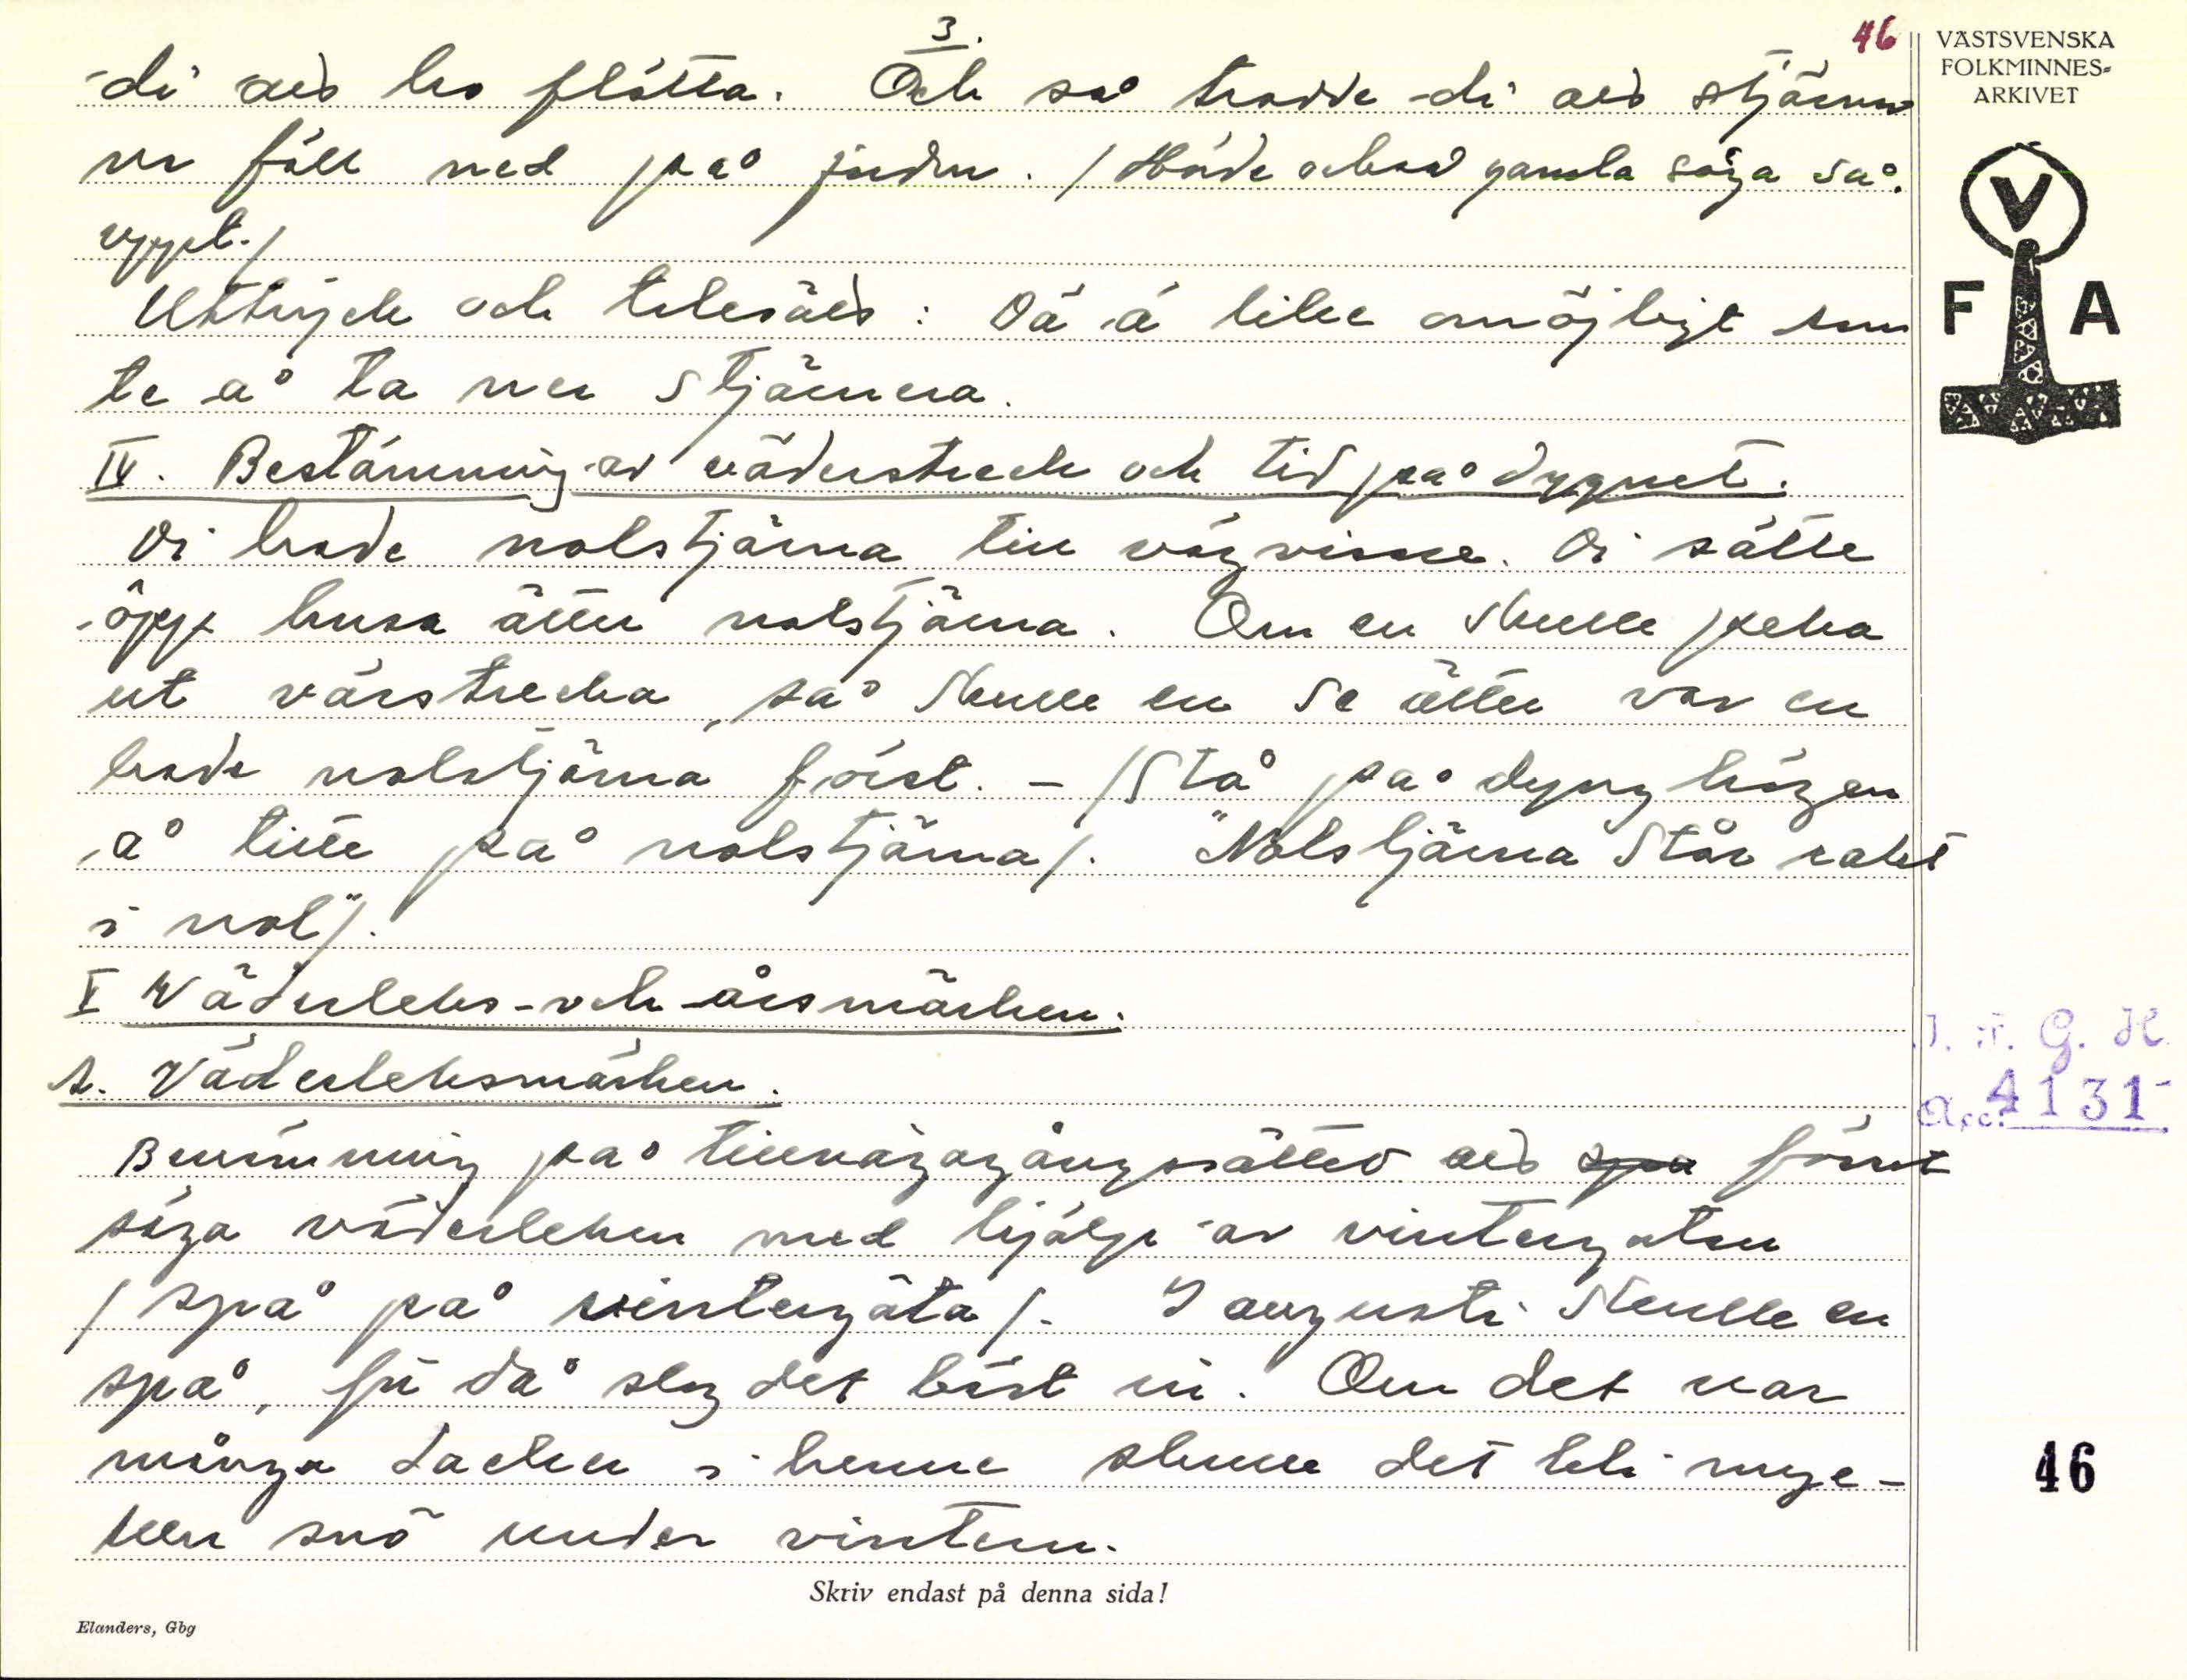 3.
46
VÄSTSVENSKA
FOLKMINNES-
ARKIVET
V
F A
di att ho flötta. Och så trodde di att stjärnor
ner föll ned på jorden. / Hörde också gamla säga så.
uppt./
Uttryck och talesätt: Dä ä lika omöjligt som
te å ta ner stjärnera.
IV. Bestämning av väderstreck och tid på dygnet.
Di hade nolstjärna till vägvisare. Di sätte
öpp husa ätter nolstjärna. Om en skulle peka
ut värstrecka, så skulle en se ätter var en
hade nolstjärna först. - /Stå på dynghögen
å titte på nolstjärna/. "Nolstjärna står rakt
i nol"/.
V Väderleks- och årsmärken.
A. Väderleksmärken.
Benämning på tillvägagångssättet att spå förut
säga väderleken med hjälp av vintergatan
/ spå på vintergata /. I augusti skulle en
spå, för då slog det bäst in. Om det var
många backer i henne skulle det bli myc-
ken snö under vintern.
J. F. G. H.
Acc. 4131
46
Skriv endast på denna sida!
Elanders, Gbg